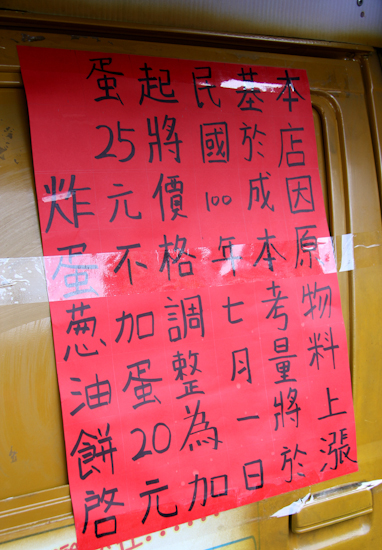 本店因原物料上漲
基於成本考量將於
民國100年七月一日
起將價格調整為加
蛋25元不加蛋20元
炸蛋葱油餅啓